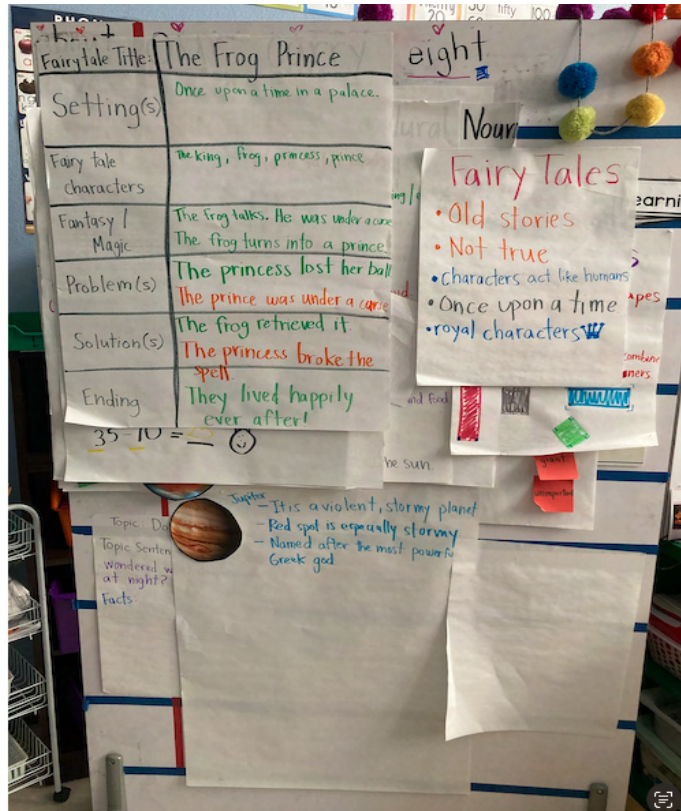 20 50 fifty 100
Fairytale Title: The Frog Prince
eight
Setting(s) Once upon a time in a palace.
Noun
Fairy tale characters The king, frog, princess, prince
Fantasy / Magic The frog talks. He was under a curse
The frog turns into a prince.
Problem(s) The princess lost her ball
The prince was under a curse
Solution(s) The frog retrieved it.
The princess broke the
spell.
Ending They lived happily
ever after!
Fairy Tales
• Old stories
• Not true
• Characters act like humans
• Once upon a time
• royal characters
and food
giant
unimportant
he sun.
35-10 =
Jupiter
- It is a violent, stormy planet
- Red spot is especially stormy
- Named after the most powerfu
Greek god
Topic
Topic Senten
wondered w
at night?
Facts